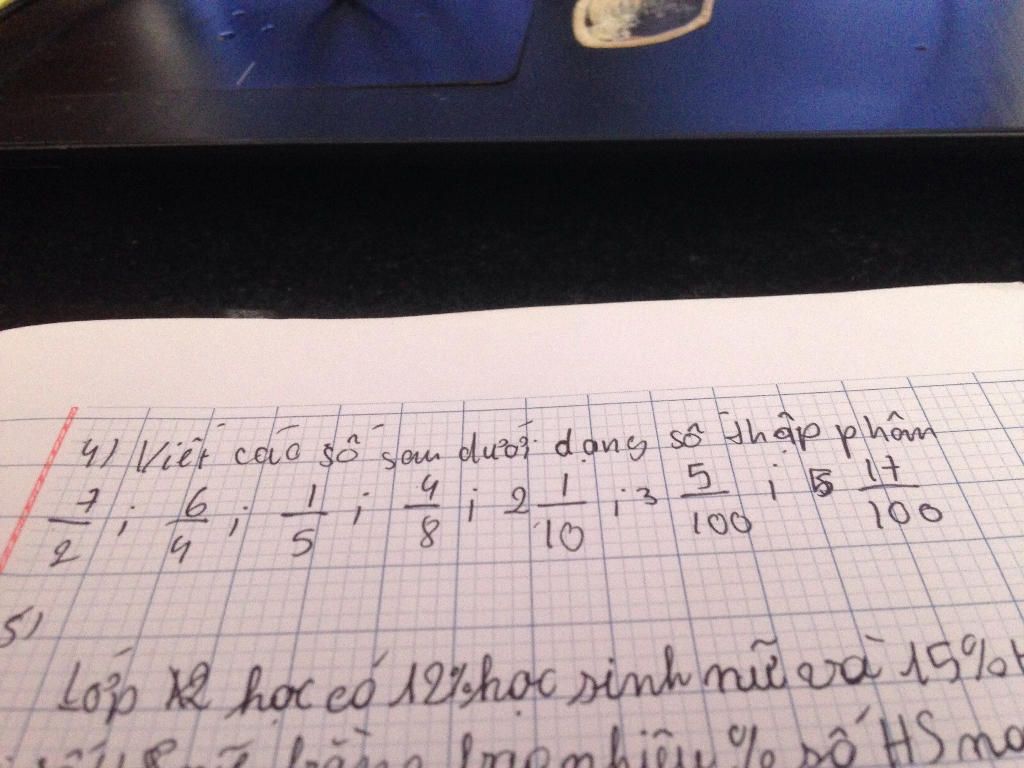 4) Viết các số sau dưới dạng số thập phân
7/2 ; 6/4 ; 1/5 ; 4/8 ; 2 1/10 ; 3 5/100 ; 5 17/100
5)
Lớp học có 12% học sinh nữ và 15%
nhiêu % số HS